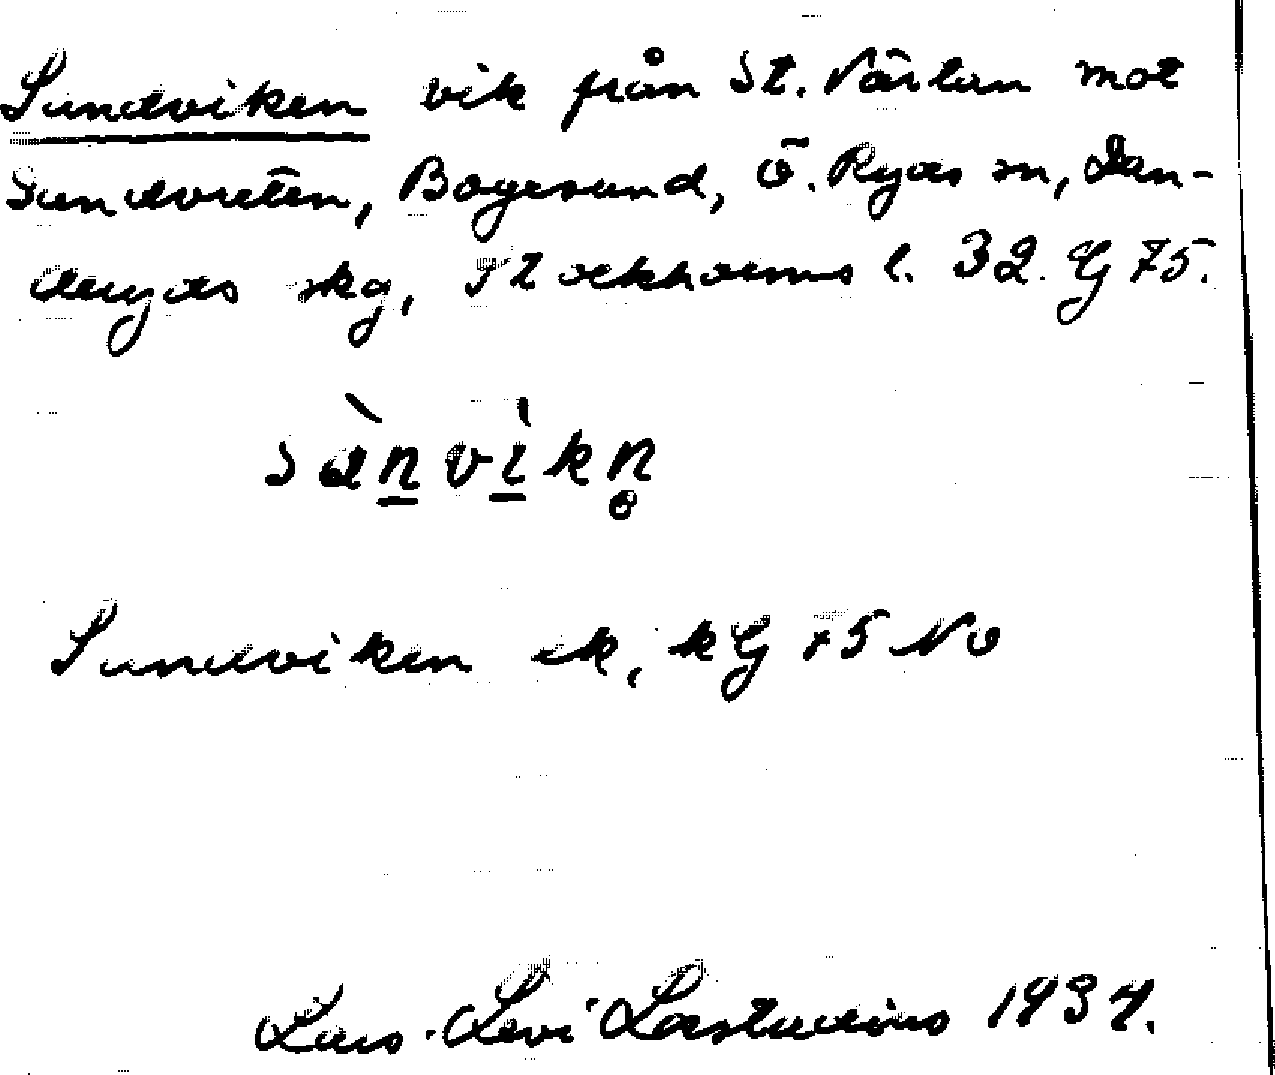 Sundviken vik från St. Värtan mot
Sundvreten, Bogesund, Ö. Ryds sn, Dan-
deryds skg, Stockholms l. 32. G 75.
sànvìkn̥
Sundviken ek, kG 75 NO
Lars-Levi Læstadius 1937.